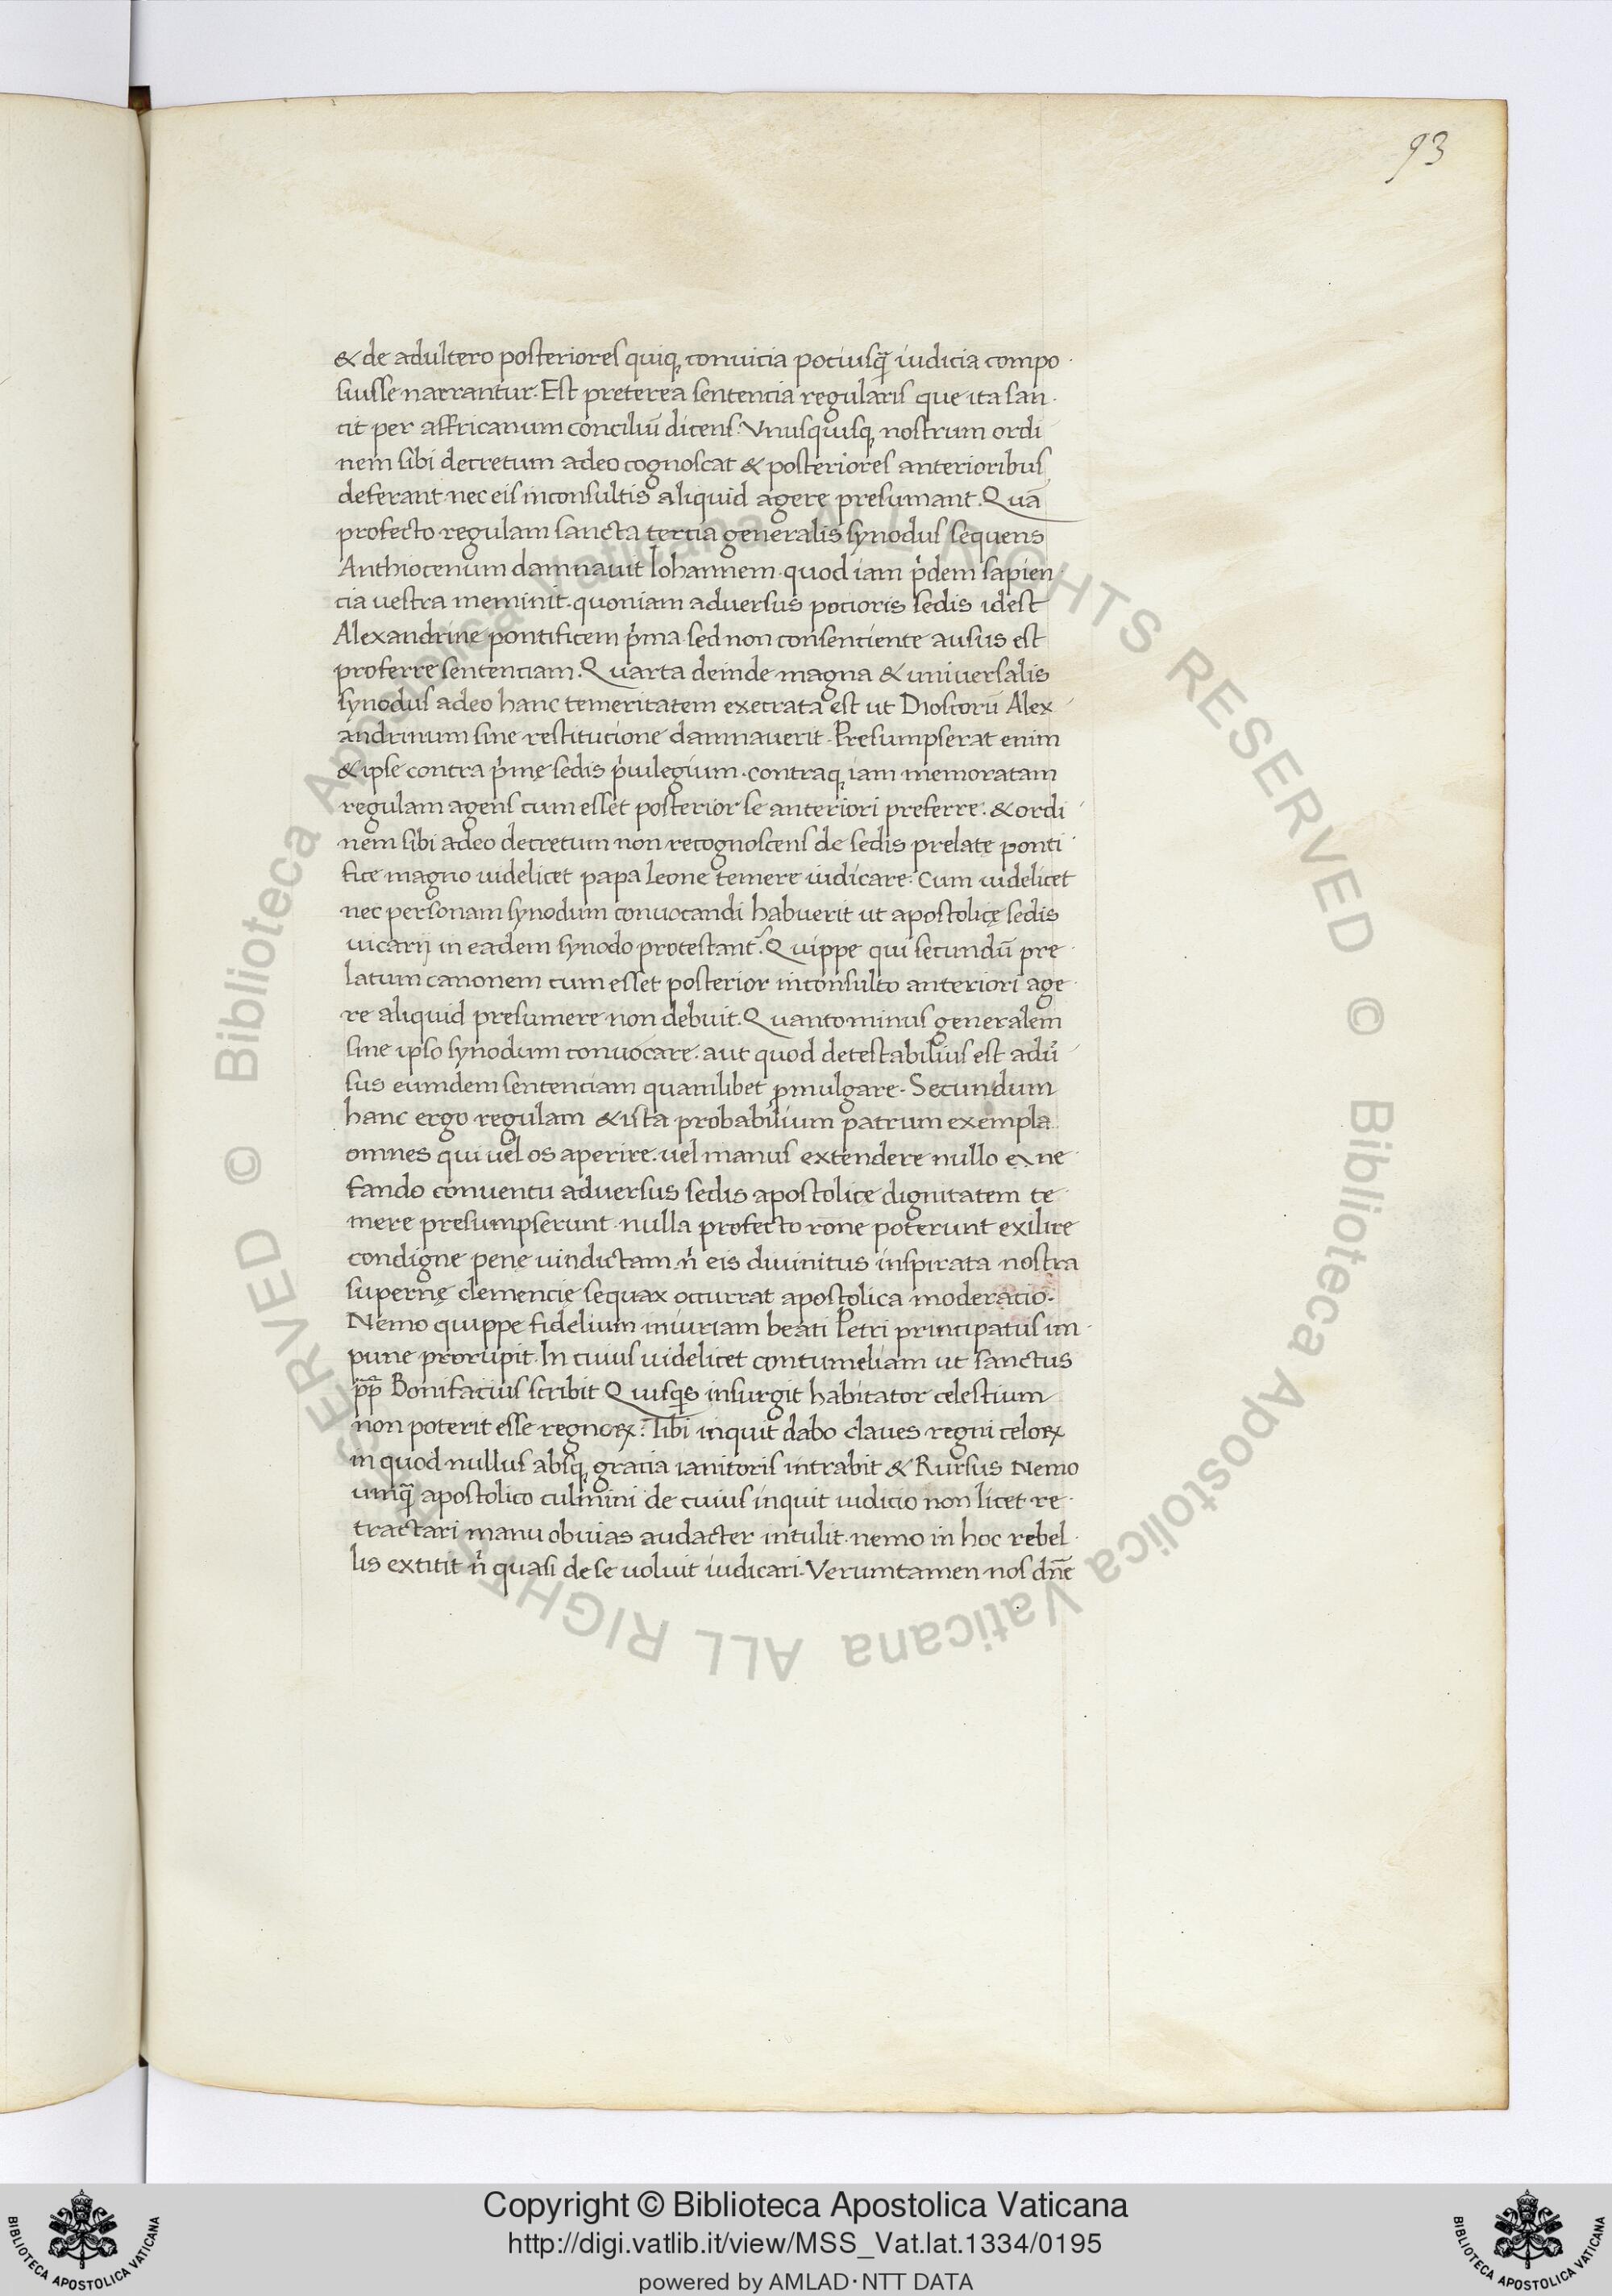 93
& de adultero posteriores quiq; conuicia pociusq̃ iudicia compo·
suisse narrantur. Est preterea sentencia regularis que ita san·
cit per affricanum conciliũ dicens: Vnusquisq; nostrum ordi
nem sibi decretum adeo cognoscat & posteriores anterioribus
deferant· nec eis inconsultis aliquid agere presumant. Quã
profecto regulam sancta tertia generalis synodus sequens
Anthiocenum damnauit Iohannem· quod iam pͥdem sapien·
cia vestra meminit· quoniam adversus pocioris sedis idest
Alexandrine pontificem pͥma sed non consenciente ausus est
proferre sentenciam. Quarta deinde magna & universalis
synodus adeo hanc temeritatem execrata est ut Dioscorũ Alex
andrinum sine restitucione damnaverit. Presumpserat enim
& ipse contra pͥmę sedis pͥuilegium· contraq; iam memoratam
regulam agens cum esset posterior se anteriori preferre: & ordi
nem sibi adeo decretum non recognoscens de sedis prelatę ponti
fice magno videlicet papa leone temere iudicare: Cum videlicet
nec personam synodum convocandi habuerit ut apostolicę sedis
uicarij in eadem synodo protestant᷑. Quippe qui secundũ pre
latum canonem cum esset posterior inconsulto anteriori age·
re aliquid presumere non debuit. Quanto minus generalem
sine ipso synodum convocare· aut quod detestabilius est adũ
sus eumdem sentenciam quamlibet ꝓmulgare· Secundum
hanc ergo regulam & ista probabilium patrum exempla
omnes qui uel os aperire· uel manus extendere nullo ex ne
fando conuentu adversus sedis apostolicę dignitatem te·
mere presumpserunt· nulla profecto rõne poterunt exilire
condigne penę vindictam· nͥ eis divinitus inspirata nostra
supernę clemencię sequax occurrat apostolica moderatio.
Nemo quippe fidelium iniuriam beati Petri principatus im·
pune prorupit. In cuius videlicet contumeliam ut sanctus
p̃p̃ Bonifacius scribit Quisqͥs insurgit habitator celestium
non poterit esse regnoꝝ: Tibi inquit dabo claves regni celoꝝ
in quod nullus absq; gracia ianitoris intrabit & Rursus Nemo
umq̃ apostolico culmini de cuius inquit iudicio non licet re·
tractari manu obuias audacter intulit· nemo in hoc rebel·
lis extitit nͥ quasi de se voluit iudicari. Verumtamen nos dñe
© Biblioteca Apostolica Vaticana ALL RIGHTS RESERVED © Biblioteca Apostolica Vaticana ALL RIGHTS RESERVED
Copyright © Biblioteca Apostolica Vaticana
http://digi.vatlib.it/view/MSS_Vat.lat.1334/0195
powered by AMLAD·NTT DATA
BIBLIOTECA APOSTOLICA VATICANA
BIBLIOTECA APOSTOLICA VATICANA